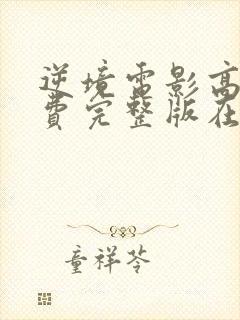 逆境电影高
费完整版在
童祥苓